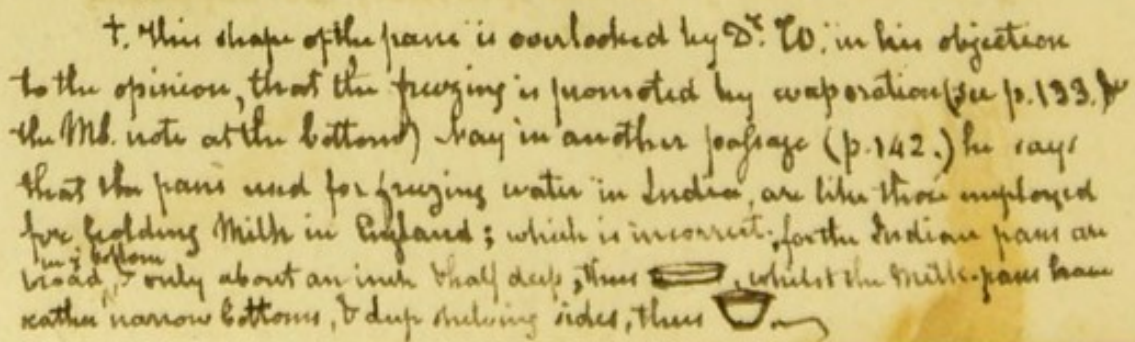 †. This shape of the pans is overlooked by Dr. W. in his objection
to the opinion, that the freezing is promoted by evaporation (see p. 133. &
the MS. note at the bottom) Nay in another passage (p. 142.) he says
that the pans used for freezing water in India, are like those employed
for holding Milk in England; which is incorrect; for the Indian pans are
in ye bottom
broad, & only about an inch & half deep, thus , whilst the Milk-pans have
rather narrow bottoms, & deep shelving sides, thus